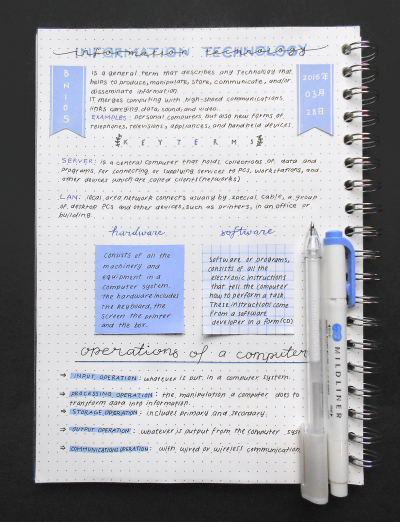 INFORMATION TECHNOLOGY
BNI05
2016年
03月
28日
IS a general term that describes any technology that
helps to produce, manipulate, store, communicate, and/or
disseminate information.
IT merges computing with high-speed communications
links carrying data, sound, and video.
EXAMPLES: personal computers but also new forms of
telephones, televisions, appliances, and handheld devices
KEY TERMS
SERVER: is a general computer that holds collections of data and
programs for connecting or supplying services to PCS, workstations, and
other devices which are called clients (networks)
LAN: local area network connects usually by special cable, a group
of desktop PCS and other devices, such as printers, in an office or
building.
hardware
software
consists of all the
machinery and
equipment in a
computer system.
the hardware includes
the keyboard, the
screen the printer
and the box.
software, or programs,
consists of all the
electronic instructions
that tell the computer
how to perform a task.
These instructions come
from a software
developer in a form (CD)
operations of a computer
⇒ INPUT OPERATION: whatever is put in a computer system.
⇒ PROCESSING OPERATION: the manipulation a computer does to
transform data into information.
⇒ STORAGE OPERATION: includes primary and secondary.
⇒ OUTPUT OPERATION: whatever is output from the computer sys
⇒ COMMUNICATIONS OPERATION: with wired or wireless communication
MILDLINER